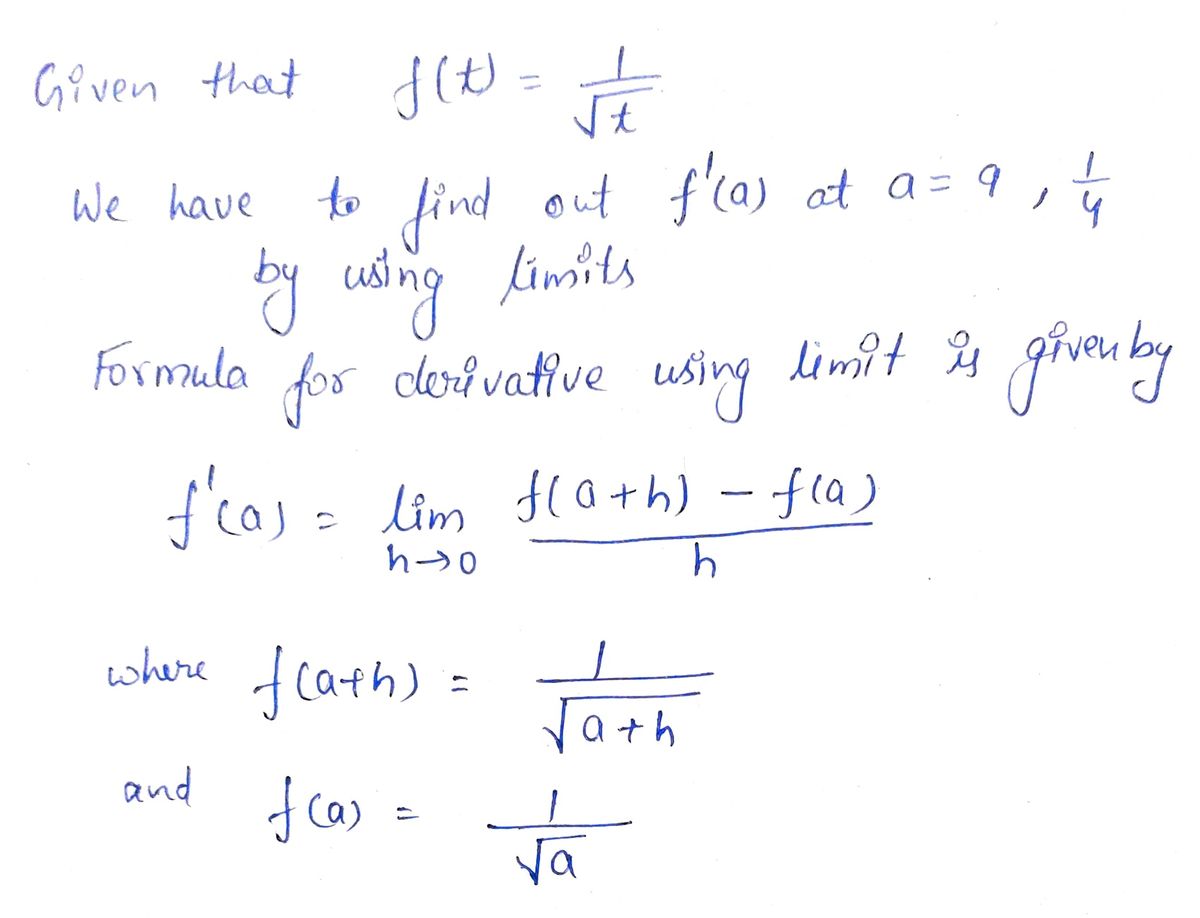 Given that f(t) = 1/√t
We have to find out f'(a) at a = 9, 1/4
by using limits
Formula for derivative using limit is given by
f'(a) = lim h→0 f(a+h) − f(a) / h
where f(a+h) = 1/√a+h
and f(a) = 1/√a